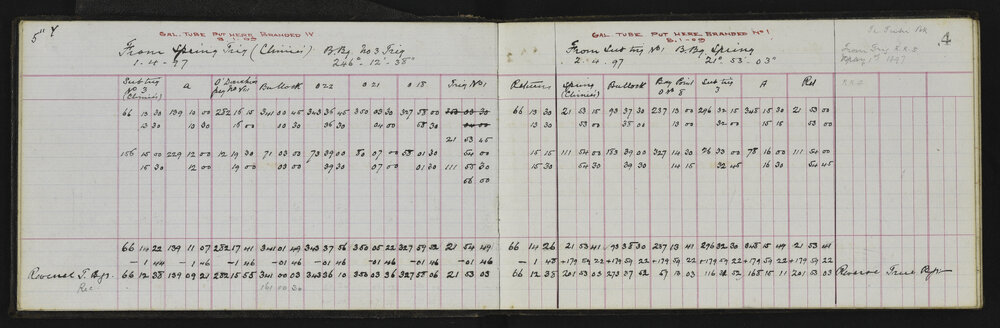 5" Y
GAL. TUBE PUT HERE BRANDED IV
8.1.09
From Spring Trig (Clinics) B.Bg. No 3 Trig
1-4-97 246° - 12' - 38"
Sub trig No 3 (Clinics) A Bullock 022 021 018 Trig No 1
66 13 30 139 10 00 282 15 15 341 00 45 343 36 45 350 03 30 327 58 00 353 00 30
13 30 10 30 15 00 00 30 36 30 04 00 58 30 04 00
21 53 45
156 15 00 229 12 00 12 19 30 71 03 00 73 39 00 80 07 00 58 01 30 54 00
15 30 12 00 19 00 03 00 39 30 07 00 01 30 111 55 30
56 00
66 14 22 139 11 07 282 17 41 341 01 49 343 37 56 350 05 22 327 59 52 21 54 49
- 1 44 - 1 46 - 1 46 - 01 46 - 01 46 - 01 46 - 01 46 - 01 46
Reversed T. Bgs. 66 12 38 139 09 21 282 15 55 341 00 03 343 36 10 350 03 36 327 58 06 21 53 03
Rec. 161 00 30
GAL. TUBE PUT HERE BRANDED No 1.
8.1-09
From Sub trig No 1 B.Bg. Spring
2.4.97 21° - 53' - 03"
4
From Trig R.R.2
May 1st 1897
Returns Spring (Clinics) Bullock Bay Point sub trig 3 A Ret R.R.2
66 13 30 21 53 15 93 37 30 237 13 00 296 32 15 348 15 30 21 53 00
13 30 53 00 38 00 13 00 32 00 15 15 53 00
156 15 15 111 54 00 183 39 00 327 14 30 26 33 00 78 16 00 111 54 00
15 30 54 30 39 30 14 15 32 45 16 30 54 45
66 14 26 21 53 41 93 38 30 237 13 41 296 32 30 348 15 49 21 53 41
- 1 48 +179 59 22 +179 59 22 +179 59 22 +179 59 22 +179 59 22 +179 59 22
66 12 38 201 53 03 273 37 52 57 13 03 116 31 52 168 15 11 201 53 03 Reverse True Bgs